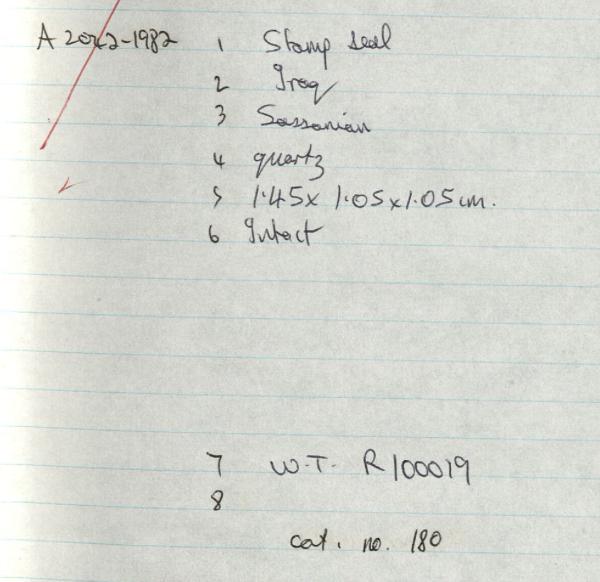 A 2042-1982 1 Stamp seal
2 Iraq
3 Sassanian
4 quartz
5 1.45x 1.05x1.05cm.
6 Intact
7 W.T. R100019
8
cat. no. 180